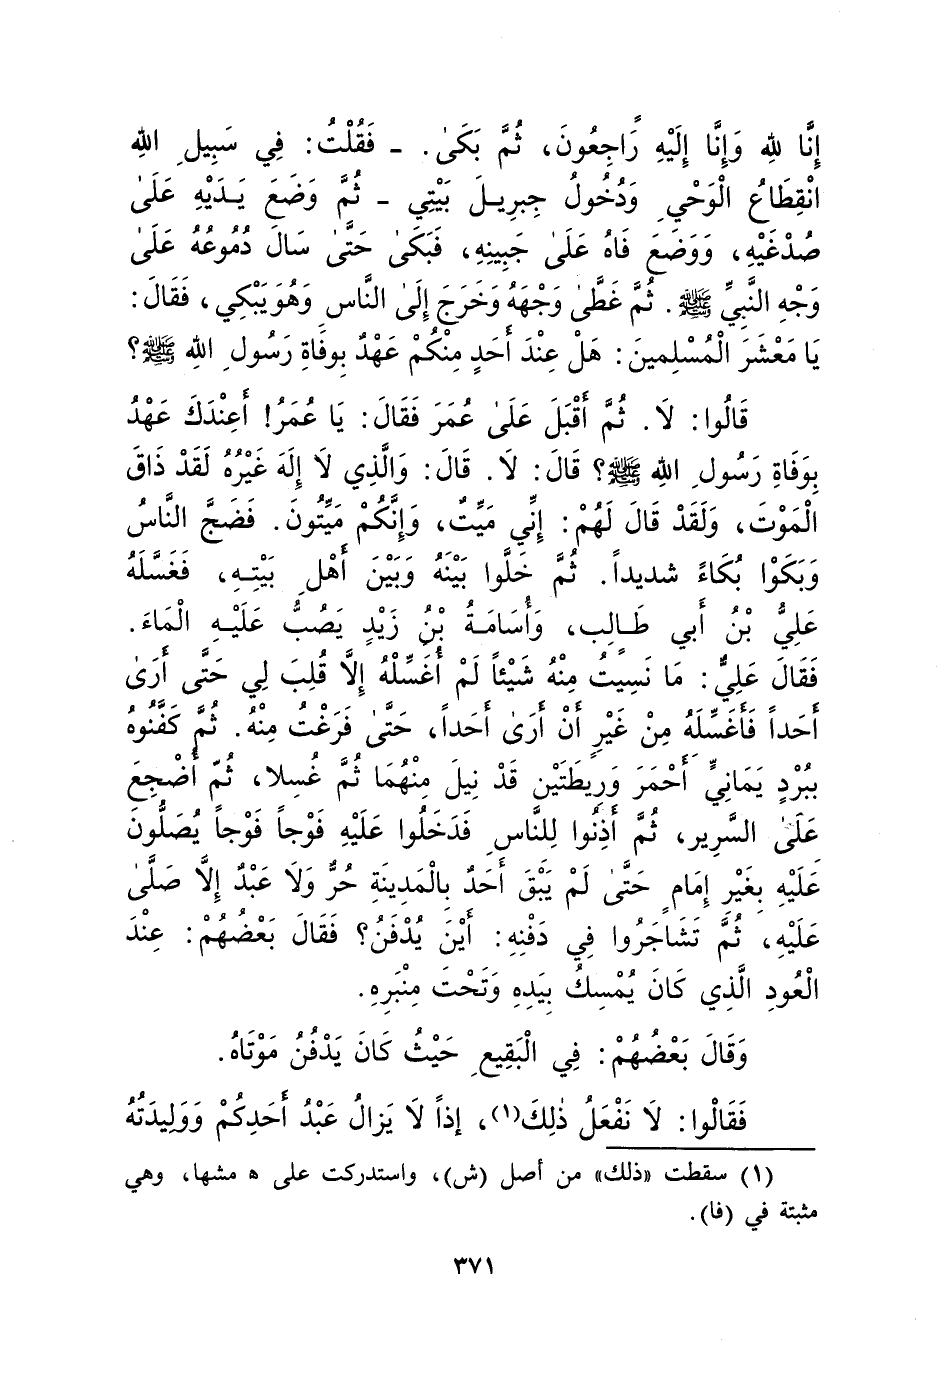 إِنَّا لِلهِ وَإِنَّا إِلَيْهِ رَاجِعُونَ، ثُمَّ بَكَىٰ. ـ فَقُلْتُ: فِي سَبِيلِ اللهِ
انْقِطَاعُ الْوَحْيِ وَدُخُولُ جِبرِيلَ بَيْتِي ـ ثُمَّ وَضَعَ يَدَيْهِ عَلَىٰ
صُدْغَيْهِ، وَوَضَعَ فَاهُ عَلَىٰ جَبِينِهِ، فَبَكَىٰ حَتَّىٰ سَالَ دُمُوعُهُ عَلَىٰ
وَجْهِ النَّبِيِّ ﷺ. ثُمَّ غَطَّىٰ وَجْهَهُ وَخَرَجَ إِلَىٰ النَّاسِ وَهُوَ يَبْكِي، فَقَالَ:
يَا مَعْشَرَ الْمُسْلِمِينَ: هَلْ عِنْدَ أَحَدٍ مِنْكُمْ عَهْدٌ بِوفَاةِ رَسُولِ اللهِ ﷺ؟
قَالُوا: لَا. ثُمَّ أَقْبَلَ عَلَىٰ عُمَرَ فَقَالَ: يَا عُمَرُ! أَعِنْدَكَ عَهْدٌ
بِوَفَاةِ رَسُولِ اللهِ ﷺ؟ قَالَ: لَا. قَالَ: وَالَّذِي لَا إِلَهَ غَيْرُهُ لَقَدْ ذَاقَ
الْمَوْتَ، وَلَقَدْ قَالَ لَهُمْ: إِنِّي مَيِّتٌ، وَإِنَّكُمْ مَيِّتُونَ. فَضَجَّ النَّاسُ
وَبَكَوْا بُكَاءً شديداً. ثُمَّ خَلَّوا بَيْنَهُ وَبَيْنَ أَهْلِ بَيْتِهِ، فَغَسَّلَهُ
عَلِيُّ بْنُ أَبي طَالِبٍ، وَأُسَامَةُ بْنُ زَيْدٍ يَصُبُّ عَلَيْهِ الْمَاءَ.
فَقَالَ عَلِيٌّ: مَا نَسِيتُ مِنْهُ شَيْئاً لَمْ أُغَسِّلْهُ إِلَّا قُلِبَ لِي حَتَّى أَرَىٰ
أَحَداً فَأُغَسِّلَهُ مِنْ غَيْرِ أَنْ أَرَىٰ أَحَداً، حَتَّىٰ فَرَغْتُ مِنْهُ. ثُمَّ كَفَّنُوهُ
بِبُرْدٍ يَمَانِيٍّ أَحْمَرَ وَرِيطَتَيْنِ قَدْ نِيلَ مِنْهُمَا ثُمَّ غُسِلا، ثُمّ أُضْجِعَ
عَلَىٰ السَّرِيرِ، ثُمَّ أَذِنُوا لِلنَّاسِ فَدَخَلُوا عَلَيْهِ فَوْجاً فَوْجاً يُصَلُّونَ
عَلَيْهِ بِغَيْرِ إِمَامٍ حَتَّىٰ لَمْ يَبْقَ أَحَدٌ بِالْمَدِينَةِ حُرٌّ وَلَا عَبْدٌ إِلَّا صَلَّىٰ
عَلَيْهِ، ثُمَّ تَشَاجَرُوا فِي دَفْنِهِ: أَيْنَ يُدْفَنُ؟ فَقَالَ بَعْضُهُمْ: عِنْدَ
الْعُودِ الَّذِي كَانَ يُمْسِكُ بِيَدِهِ وَتَحْتَ مِنْبَرِهِ.
وَقَالَ بَعْضُهُمْ: فِي الْبَقِيعِ حَيْثُ كَانَ يَدْفُنُ مَوْتَاهُ.
فَقَالُوا: لَا نَفْعَلُ ذٰلِكَ(١)، إِذاً لَا يَزالُ عَبْدُ أَحَدِكُمْ وَوَلِيدَتُهُ
(١) سقطت «ذلك» من أصل (ش)، واستدركت على ه مشها، وهي
مثبتة في (فا).
٣٧١